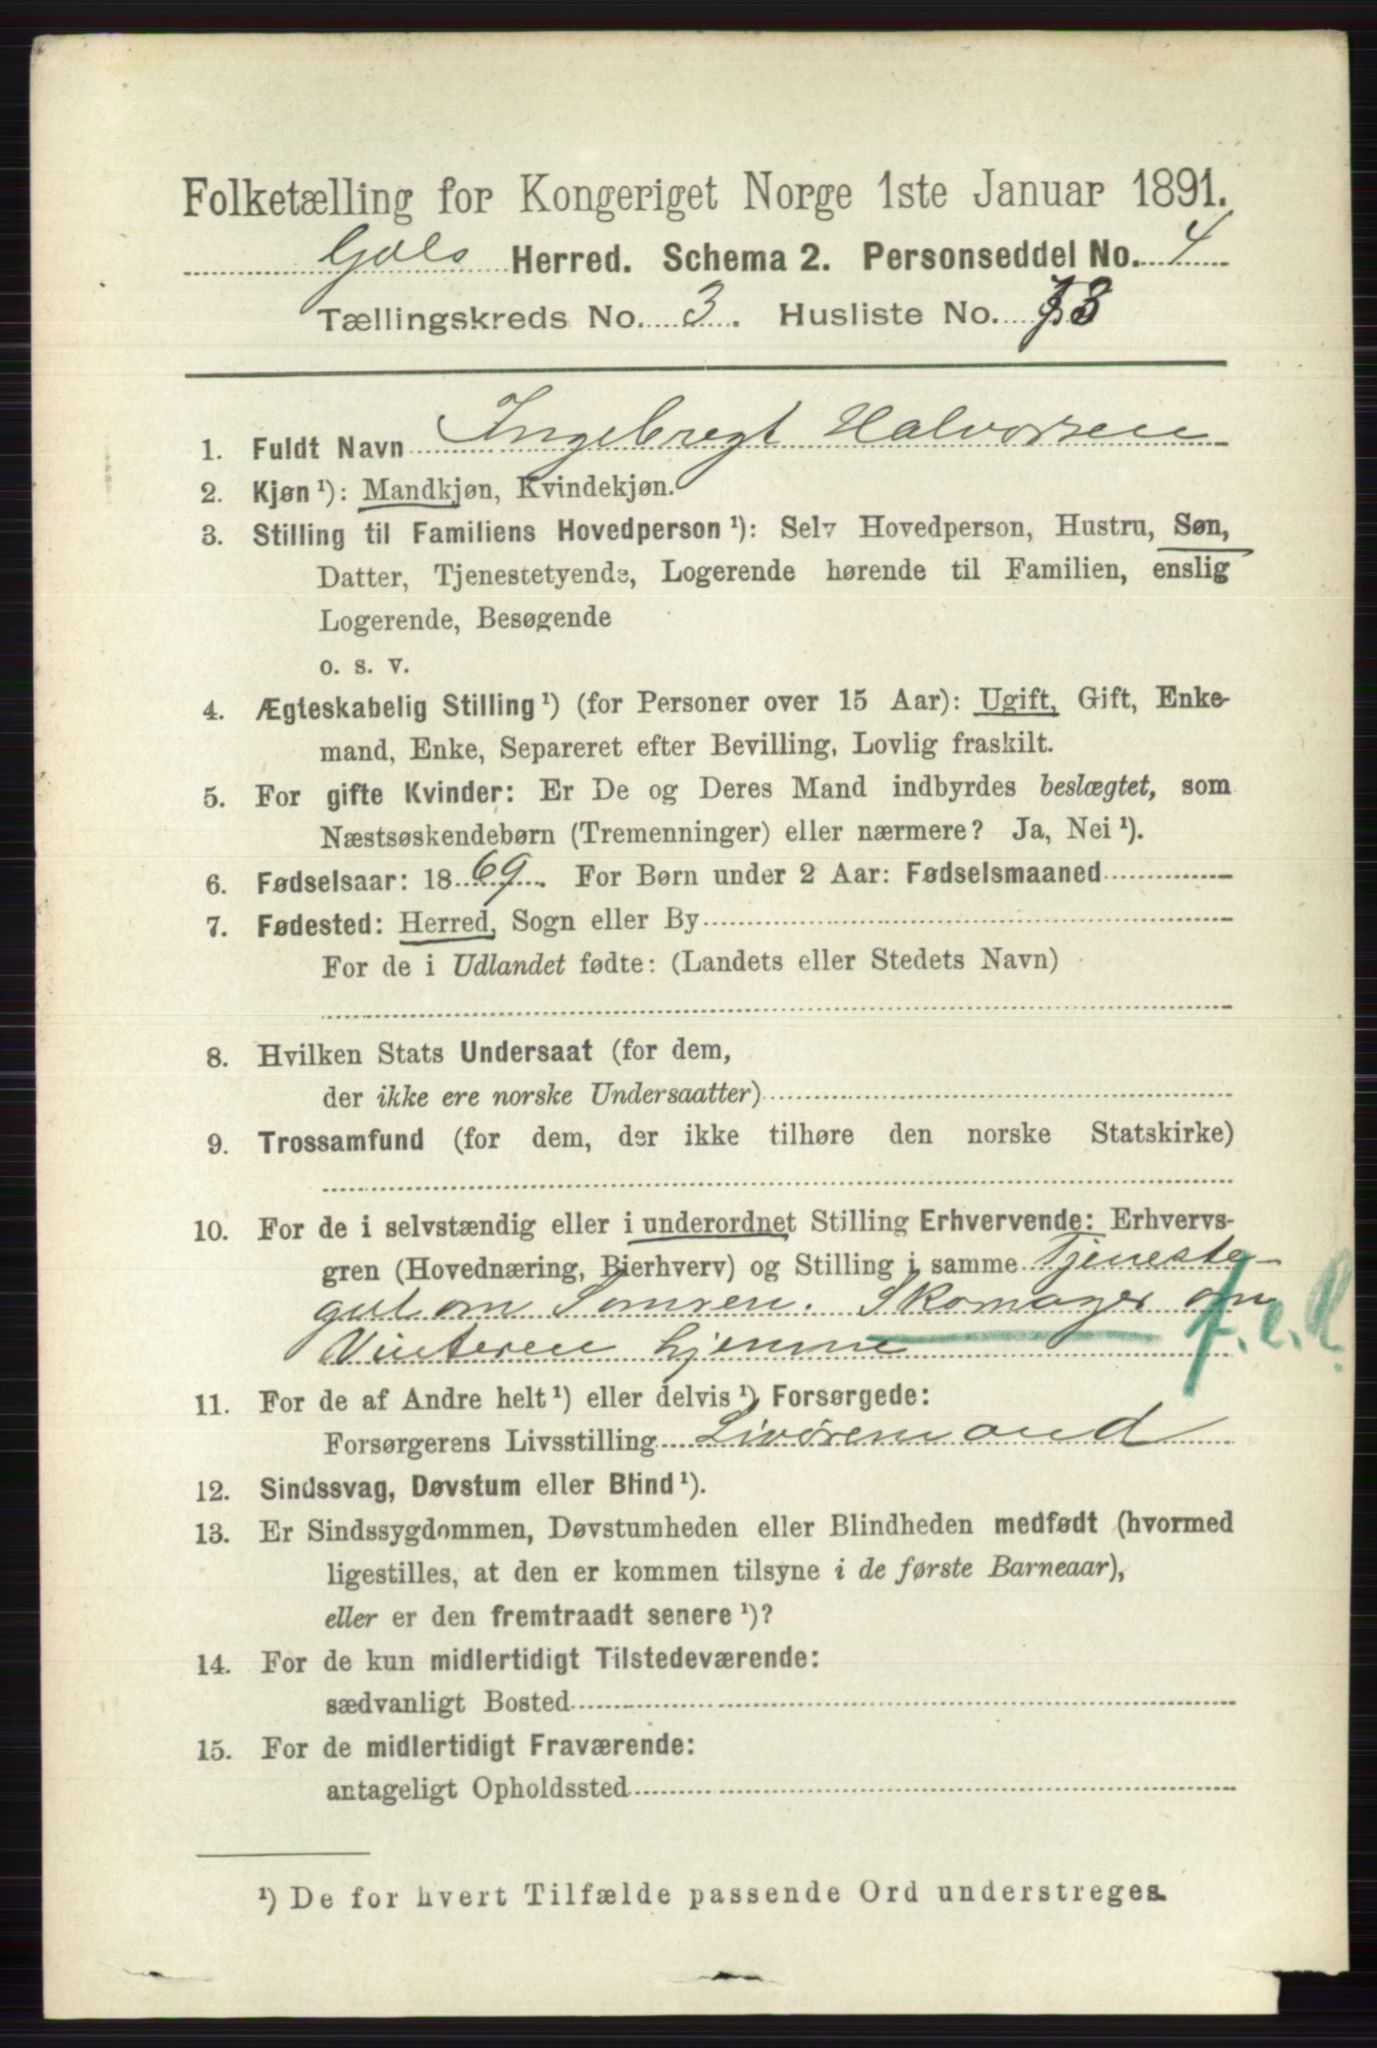 Folketælling for Kongeriget Norge 1ste Januar 1891.
Gols Herred. Schema 2. Personseddel No. 4
Tællingskreds No. 3. Husliste No. 13
1. Fuldt Navn Ingebregt Halvorsen
2. Kjøn ¹): Mandkjøn, Kvindekjøn.
3. Stilling til Familiens Hovedperson ¹): Selv Hovedperson, Hustru, Søn,
Datter, Tjenestetyende, Logerende hørende til Familien, enslig
Logerende, Besøgende
o. s. v.
4. Ægteskabelig Stilling ¹) (for Personer over 15 Aar): Ugift, Gift, Enke-
mand, Enke, Separeret efter Bevilling, Lovlig fraskilt.
5. For gifte Kvinder: Er De og Deres Mand indbyrdes beslægtet, som
Næstsøskendebørn (Tremenninger) eller nærmere? Ja, Nei ¹).
6. Fødselsaar: 1869. For Børn under 2 Aar: Fødselsmaaned
7. Fødested: Herred, Sogn eller By
For de i Udlandet fødte: (Landets eller Stedets Navn)
8. Hvilken Stats Undersaat (for dem,
der ikke ere norske Undersaatter)
9. Trossamfund (for dem, der ikke tilhøre den norske Statskirke)
10. For de i selvstændig eller i underordnet Stilling Erhvervende: Erhvervs-
gren (Hovednæring, Bierhverv) og Stilling i samme Tjeneste-
gut om Somren. Skomager om
Vinteren hjemme f.e.R.
11. For de af Andre helt ¹) eller delvis ¹) Forsørgede:
Forsørgerens Livsstilling Livøremand
12. Sindssvag, Døvstum eller Blind ¹).
13. Er Sindssygdommen, Døvstumheden eller Blindheden medfødt (hvormed
ligestilles, at den er kommen tilsyne i de første Barneaar),
eller er den fremtraadt senere ¹)?
14. For de kun midlertidigt Tilstedeværende:
sædvanligt Bosted
15. For de midlertidigt Fraværende:
antageligt Opholdssted
¹) De for hvert Tilfælde passende Ord understreges.